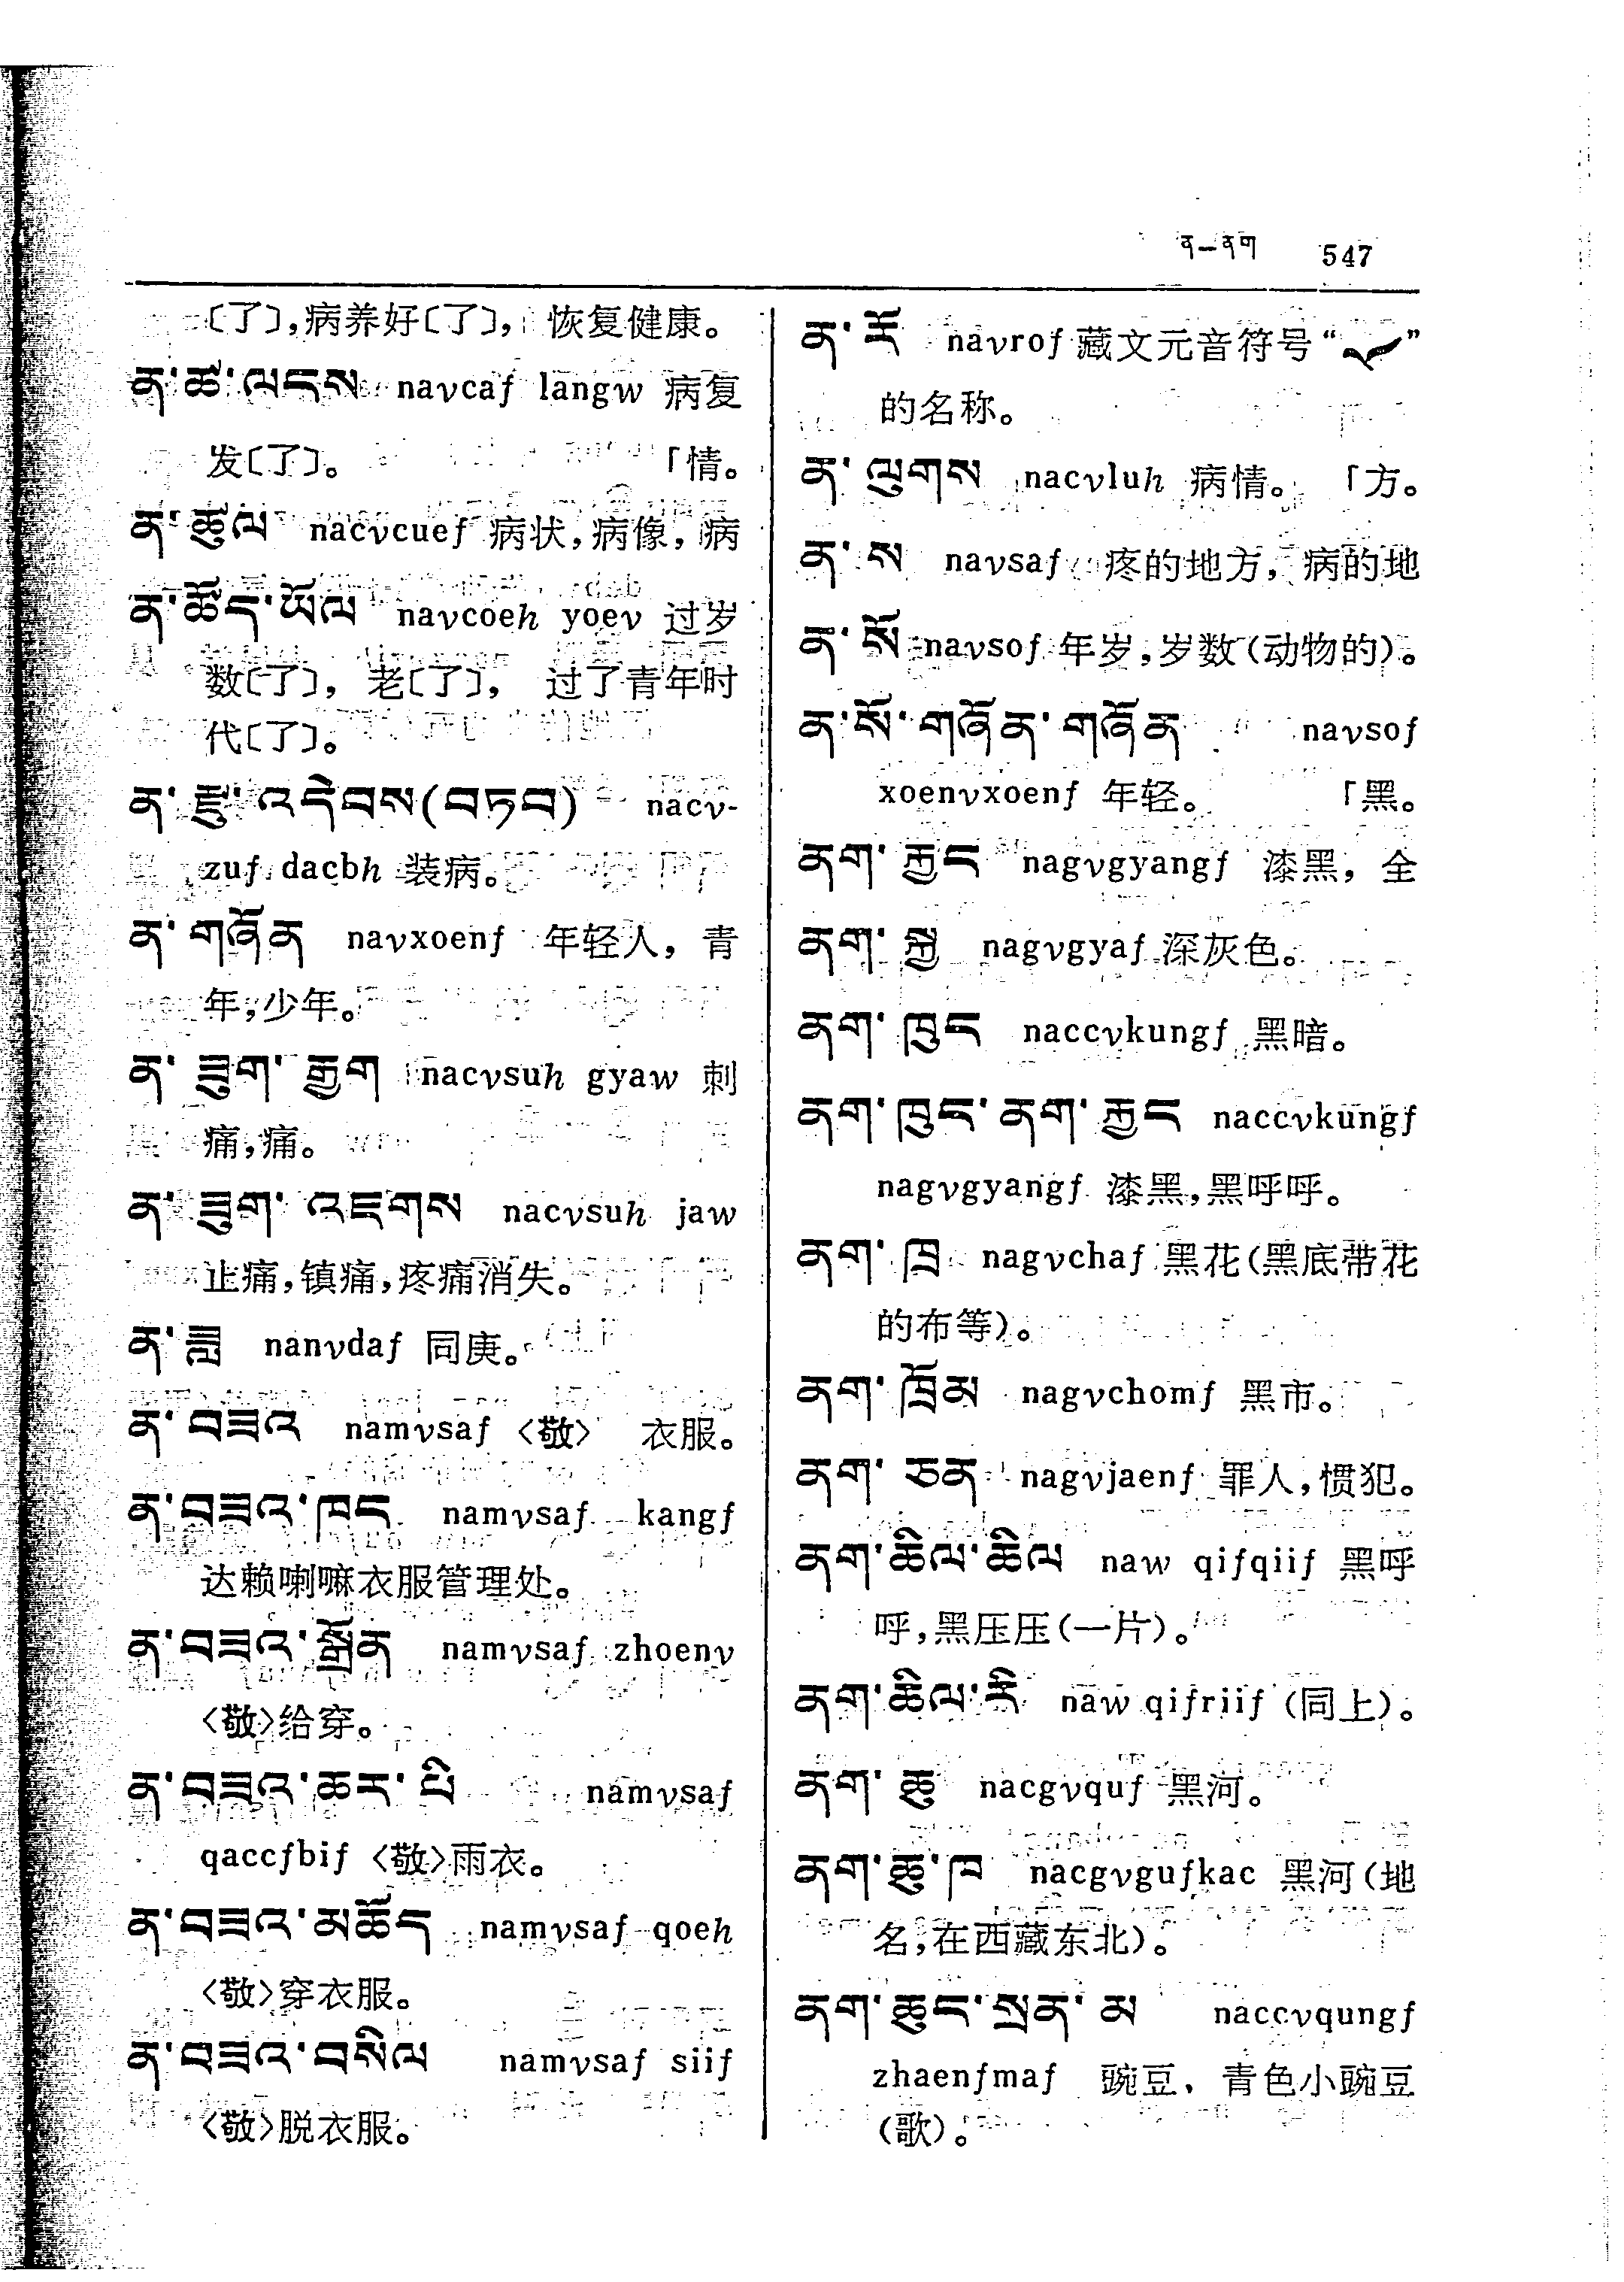 ན—ནག 547
〔了〕,病养好〔了〕, 恢复健康。
ན་ཚ་ལངས navcaf langw 病复
发〔了〕。 「情。
ན་ཚུལ nacvcuef 病状,病像,病
ན་ཚོད་ཡོལ navcoeh yoev 过岁
数〔了〕, 老〔了〕, 过了青年时
代〔了〕。
ན་རྫུ་འདེབས(བཏབ) nacv-
zuf dacbh 装病。
ན་གཞོན navxoenf 年轻人, 青
年,少年。
ན་ཟུག་རྒྱག nacvsuh gyaw 刺
痛,痛。
ན་ཟུག་འཇགས nacvsuh jaw
止痛,镇痛,疼痛消失。
ན་ཟླ nanvdaf 同庚。
ན་བཟའ namvsaf 〈敬〉 衣服。
ན་བཟའ་ཁང namvsaf kangf
达赖喇嘛衣服管理处。
ན་བཟའ་སྒྲོན namvsaf zhoenv
〈敬〉给穿。
ན་བཟའ་ཆར་པི namvsaf
qaccfbif 〈敬〉雨衣。
ན་བཟའ་མཆོད namvsaf qoeh
〈敬〉穿衣服。
ན་བཟའ་བསིལ namvsaf siif
〈敬〉脱衣服。
ན་རོ navrof 藏文元音符号“ ོ”
的名称。
ན་ལུགས nacvluh 病情。 「方。
ན་ས navsaf 疼的地方, 病的地
ན་སོ navsof 年岁,岁数(动物的)。
ན་སོ་གཞོན་གཞོན navsof
xoenvxoenf 年轻。 「黑。
ནག་རྐྱང nagvgyangf 漆黑, 全
ནག་སྐྱ nagvgyaf 深灰色。
ནག་ཁུང naccvkungf 黑暗。
ནག་ཁུང་ནག་རྐྱང naccvkungf
nagvgyangf 漆黑,黑呼呼。
ནག་ཁྲ nagvchaf 黑花(黑底带花
的布等)。
ནག་ཁྲོམ nagvchomf 黑市。
ནག་ཅན nagvjaenf 罪人,惯犯。
ནག་ཆིལ་ཆིལ naw qifqiif 黑呼
呼,黑压压(一片)。
ནག་ཆིལ་རི naw qifriif (同上)。
ནག་ཆུ nacgvquf 黑河。
ནག་ཆུ་ཁ nacgvgufkac 黑河(地
名,在西藏东北)。
ནག་ཆུང་སྲན་མ naccvqungf
zhaenfmaf 豌豆, 青色小豌豆
(歌)。